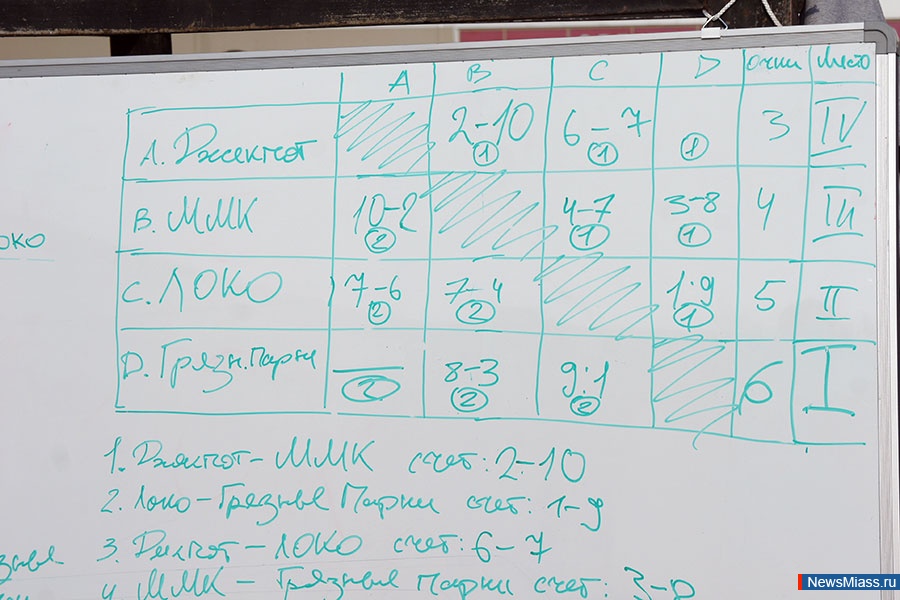 A B C D очки место
A. Джекпот 2-10 ① 6-7 ① ① 3 IV
B. ММК 10-2 ② 4-7 ① 3-8 ① 4 III
око
C. ЛОКО 7-6 ② 7-4 ② 1:9 ① 5 II
D. Грязн. Парни — ② 8-3 ② 9:1 ② 6 I
1. Джекпот - ММК счет: 2-10
2. Локо - Грязные Парни счет: 1-9
3. Джекпот - ЛОКО счет: 6-7
4. ММК - Грязные парни счет: 3-8
NewsMiass.ru